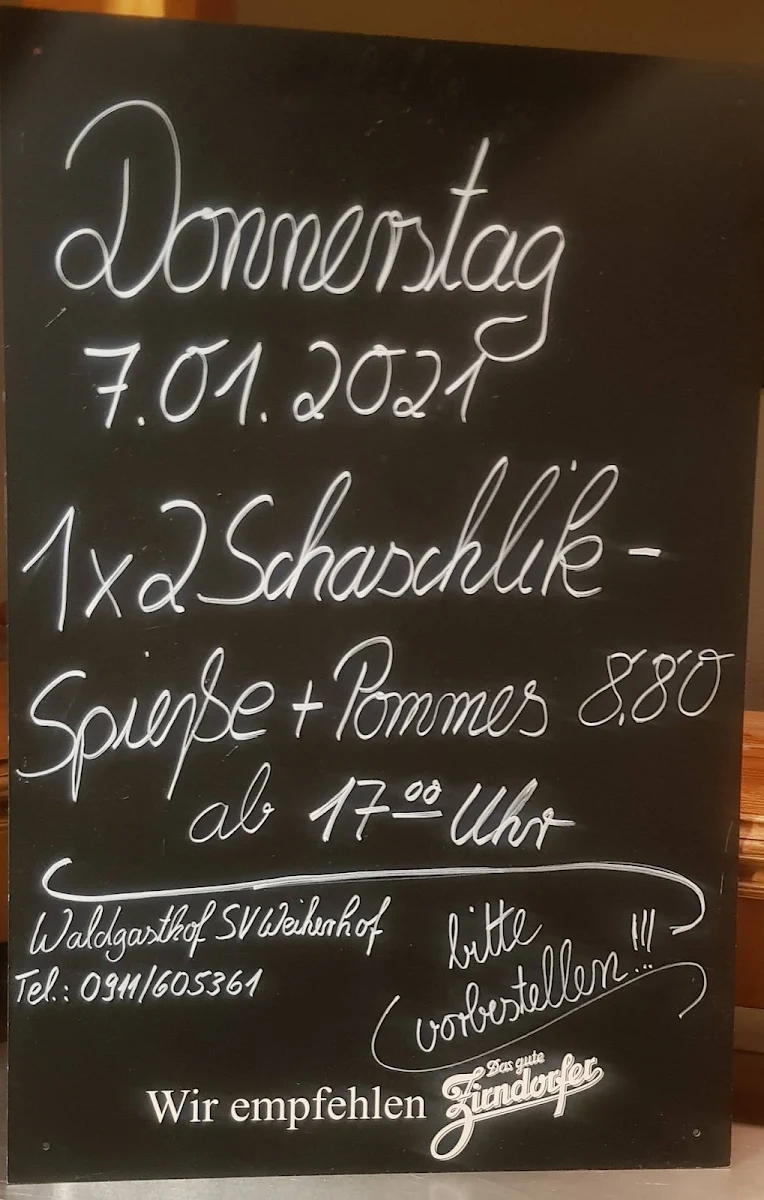 Donnerstag
7.01.2021
1x2 Schaschlik-
Spieße + Pommes 8.80
ab 17⁰⁰ Uhr
Waldgasthof SV Weiherhof
Tel.: 0911/605361
bitte
vorbestellen!!!
Wir empfehlen
Das gute
Zirndorfer